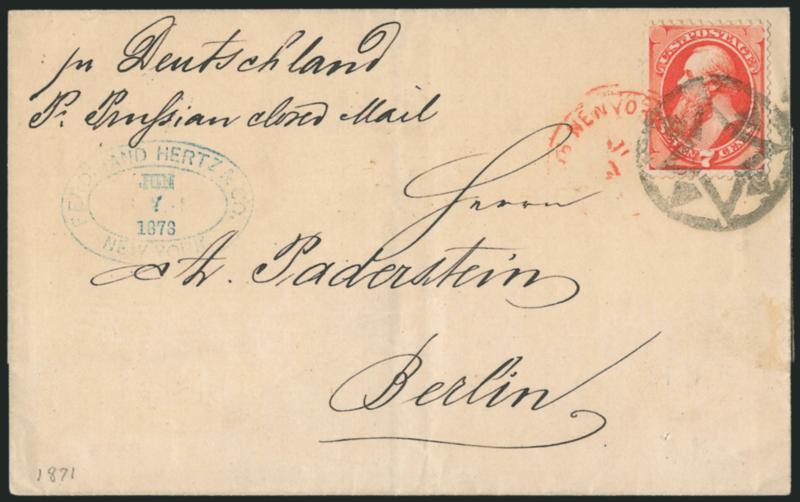 pr Deutschland
Pr. Prussian closed Mail
U.S. POSTAGE
SEVEN 7 CENTS
NEW YO
FERDINAND HERTZ & CO.
JUN
7
1873
NEW YORK
Herrn
A. Paderstein
Berlin
1871